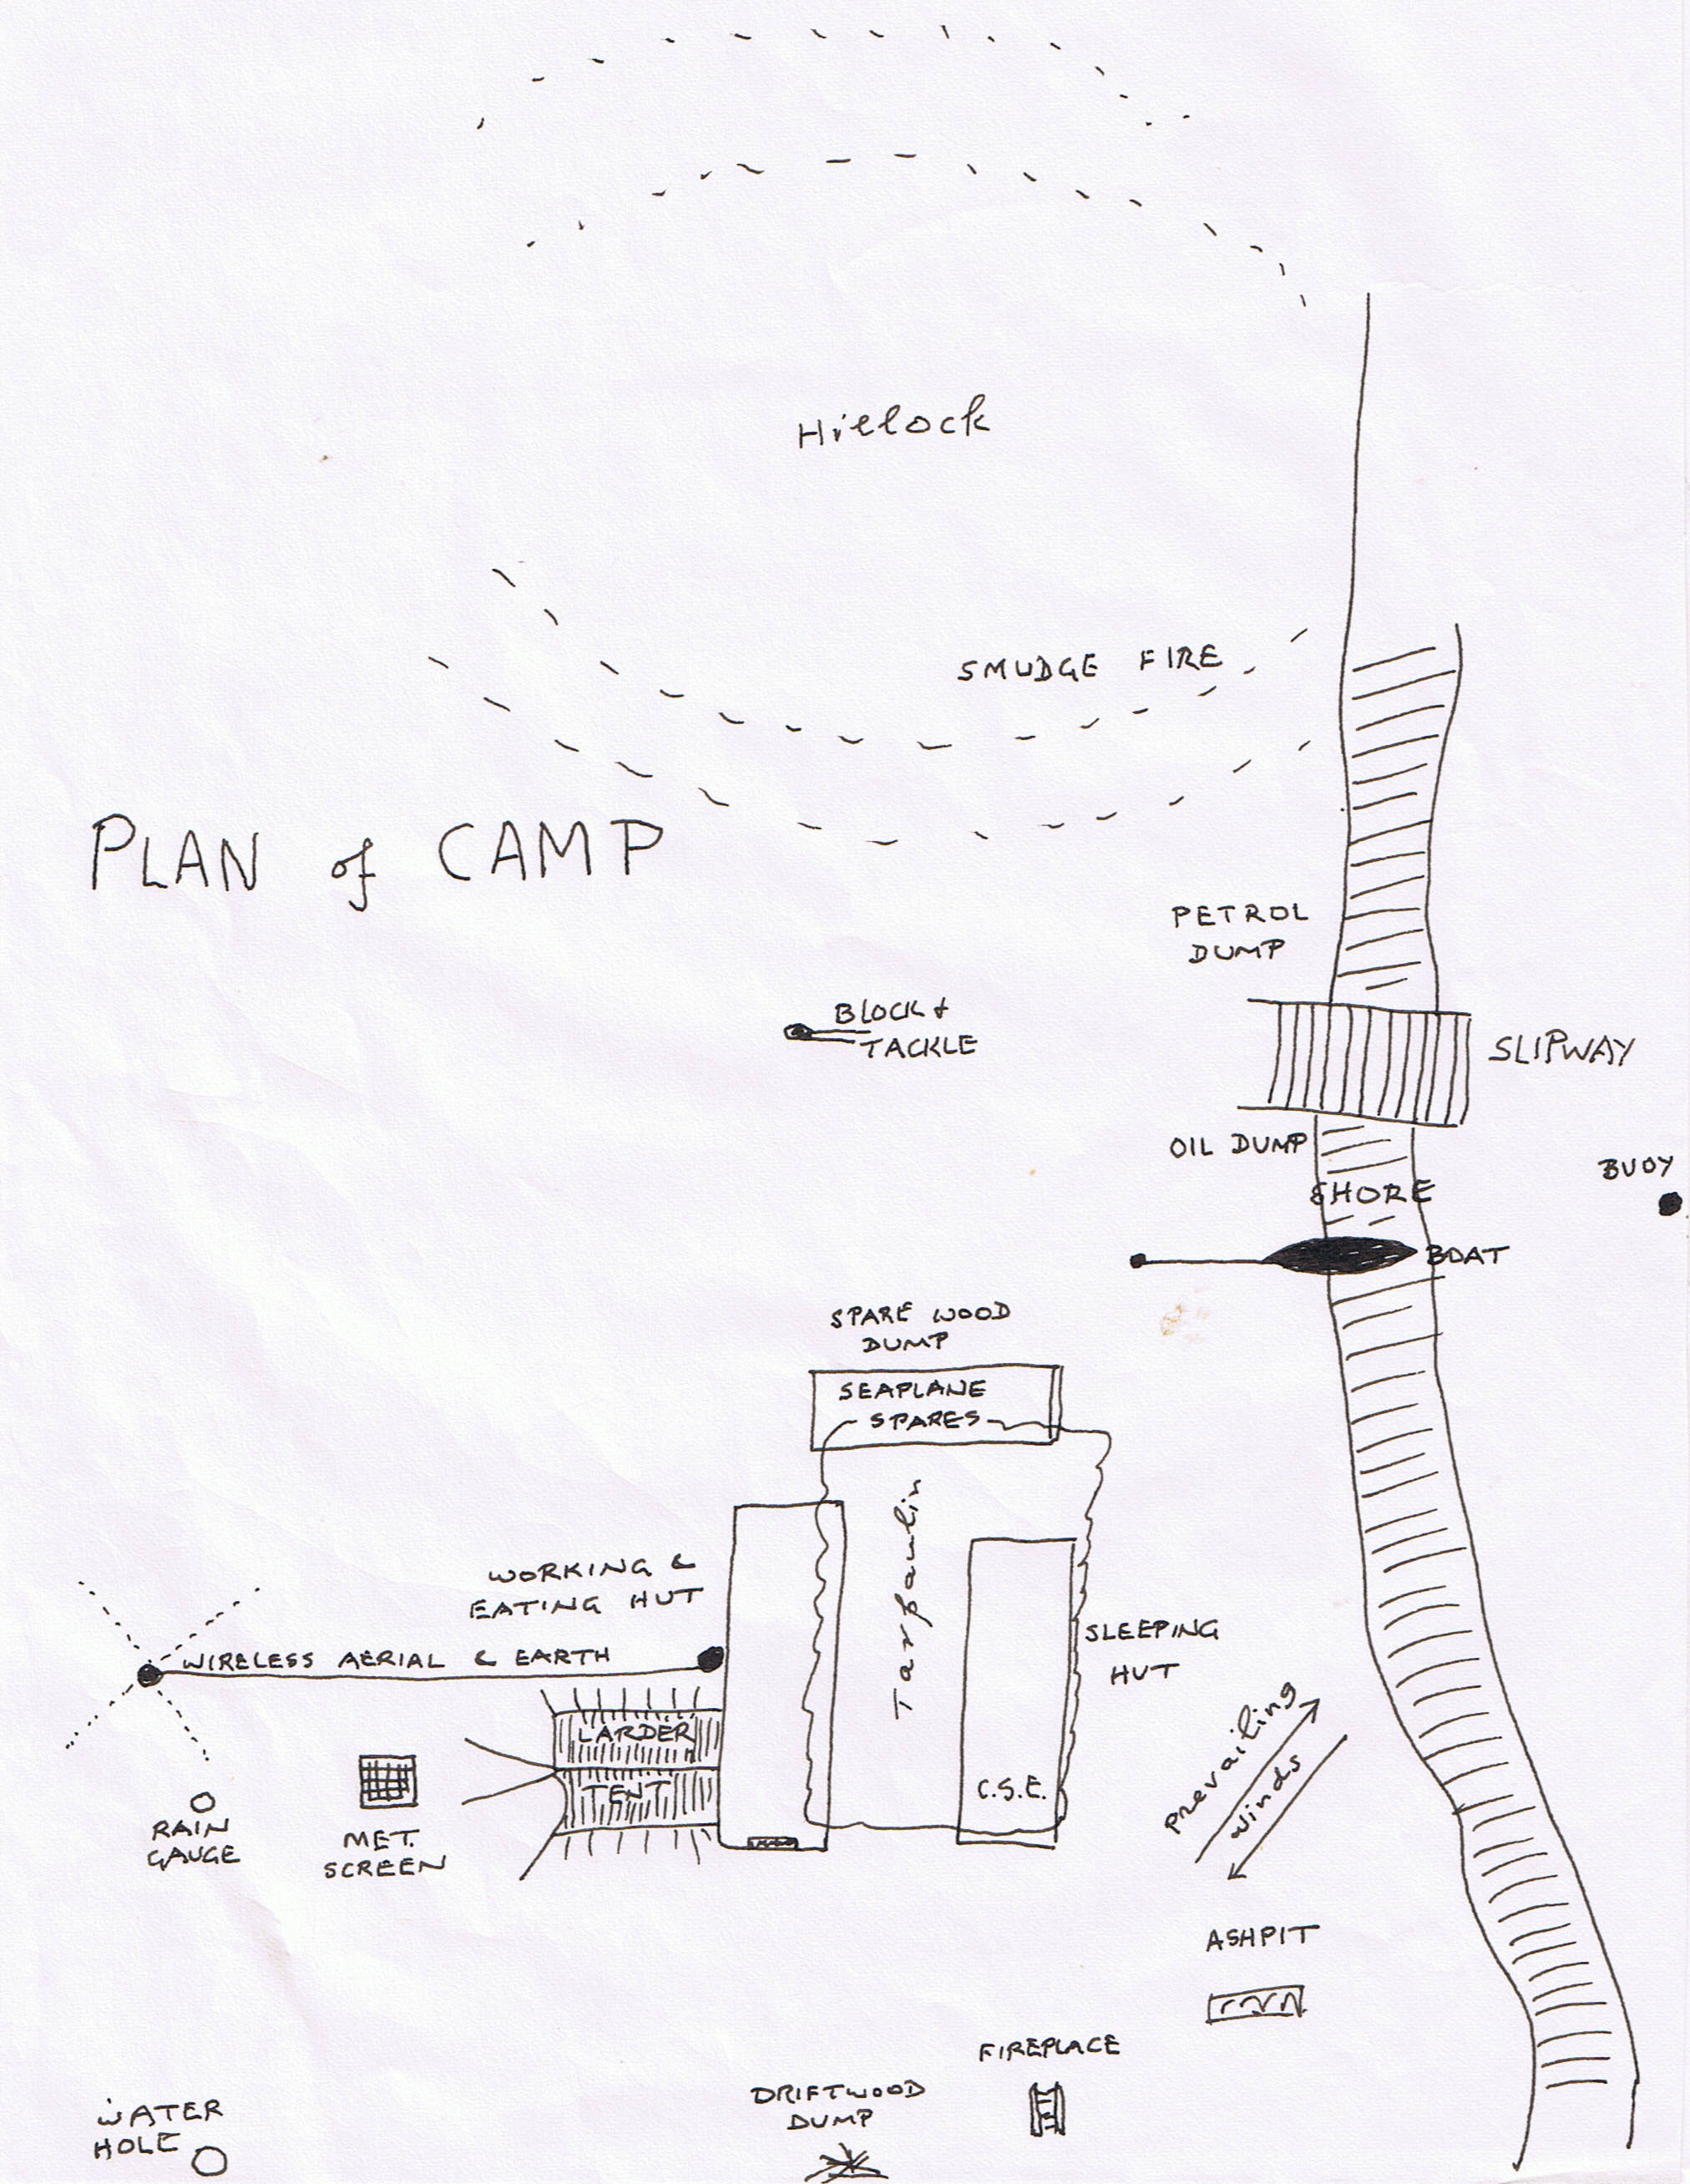 Hillock
SMUDGE FIRE
PLAN of CAMP
PETROL
DUMP
BLOCK &
TACKLE
SLIPWAY
OIL DUMP
SHORE
BUOY
BOAT
SPARE WOOD
DUMP
SEAPLANE
SPARES
Tarpaulin
WORKING &
EATING HUT
WIRELESS AERIAL & EARTH
SLEEPING
HUT
LARDER
TENT
C.S.E.
prevailing
winds
RAIN
GAUGE
MET.
SCREEN
ASHPIT
FIREPLACE
DRIFTWOOD
DUMP
WATER
HOLE